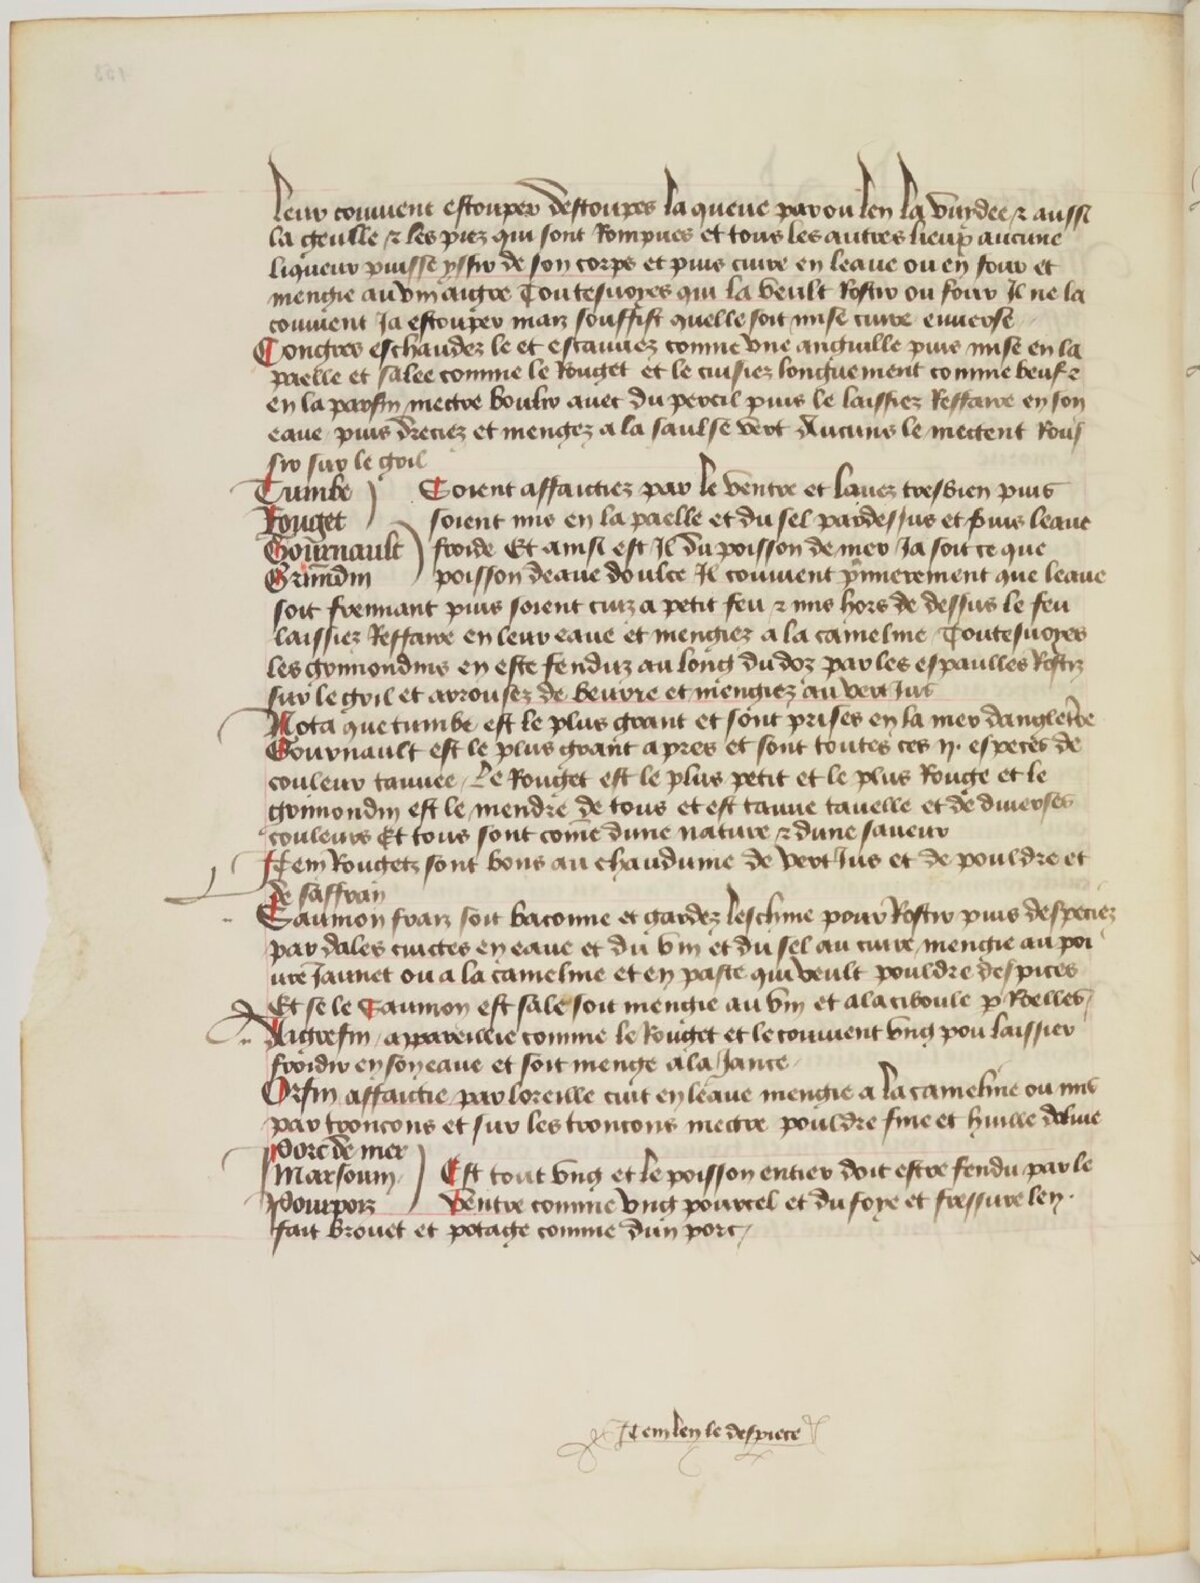 leur couuient estouper destoupes la queue par ou len la vuydee & aussi
la geulle & les piez qui sont Rompues et tous les autres lieux aucune
liqueur puisse yssir de son corps et puis cuire en leaue ou en four et
mengie au vin aigre Toutesuoyes qui la veult Rostir ou four Il ne la
conuient Ja estouper maiz souffist quelle soit mise cuire enuerse
Congres eschaudez le et estauuez comme vne anguille puis mise en la
paelle et salee comme le Rouget et le cuisiez longuement comme beuf &
en la parfin mectre boulir auec du percil puis le laissiez Reffaire en son
eaue puis dreciez et mengez a la saulse vert Aucuns le mectent Rous
sir sur le gril
Tumbe Soient affaictiez par le ventre et lauez tresbien puis
Rouget soient mis en la paelle et du sel pardessus et puis leaue
Gournault froide Et ainsi est Il du poisson de mer Ja soit ce que
Grimdin poisson deaue doulce Il conuient p̃mierement que leaue
soit fremiant puis soient cuiz a petit feu & mis hors de dessus le feu
laissiez Reffaire en leur eaue et mengiez a la cameline Toutesuoyes
les grimondins en este fenduz au long du doz par les espaulles Rostiz
sur le gril et arrousez de beurre et mengiez au vert Jus
Nota que tumbe est le plus grant et sont prises en la mer dangleterre
Gournault est le plus grant apres et sont toutes ces ij. especes de
couleur tannee Le Rouget est le plus petit et le plus Rouge et le
grimondin est le mendre de tous et est tanne tauelle et de diuerses
couleurs Et tous sont com̃e dune nature & dune saueur
Item Rougetz sont bons au chaudume de vert Jus et de pouldre et
de saffran
Saumon fraiz soit baconne et gardez leschine pour Rostir puis despeciez
par dales cuictes en eaue et du vin et du sel au cuire mengie au poi
ure Jaunet ou a la cameline et en paste qui veult pouldre despices
Et se le Saumon est sale soit mengie au vin et a la ciboule p Roelles
Aigrefin appareillie comme le Rouget et le conuient vng pou laissier
froidir en son eaue et soit menge a la Jance
Orfin affaictie par loreille cuit en leaue mengie a la cameline ou mis
par troncons et sur les troncons mectre pouldre fine et huille doliue
Porc de mer
Marsouin Est tout vng et le poisson entier doit estre fendu par le
Pourpoiz ventre comme vng pourcel et du foye et fressure len
fait brouet et potage comme dun porc
Item len le despiece